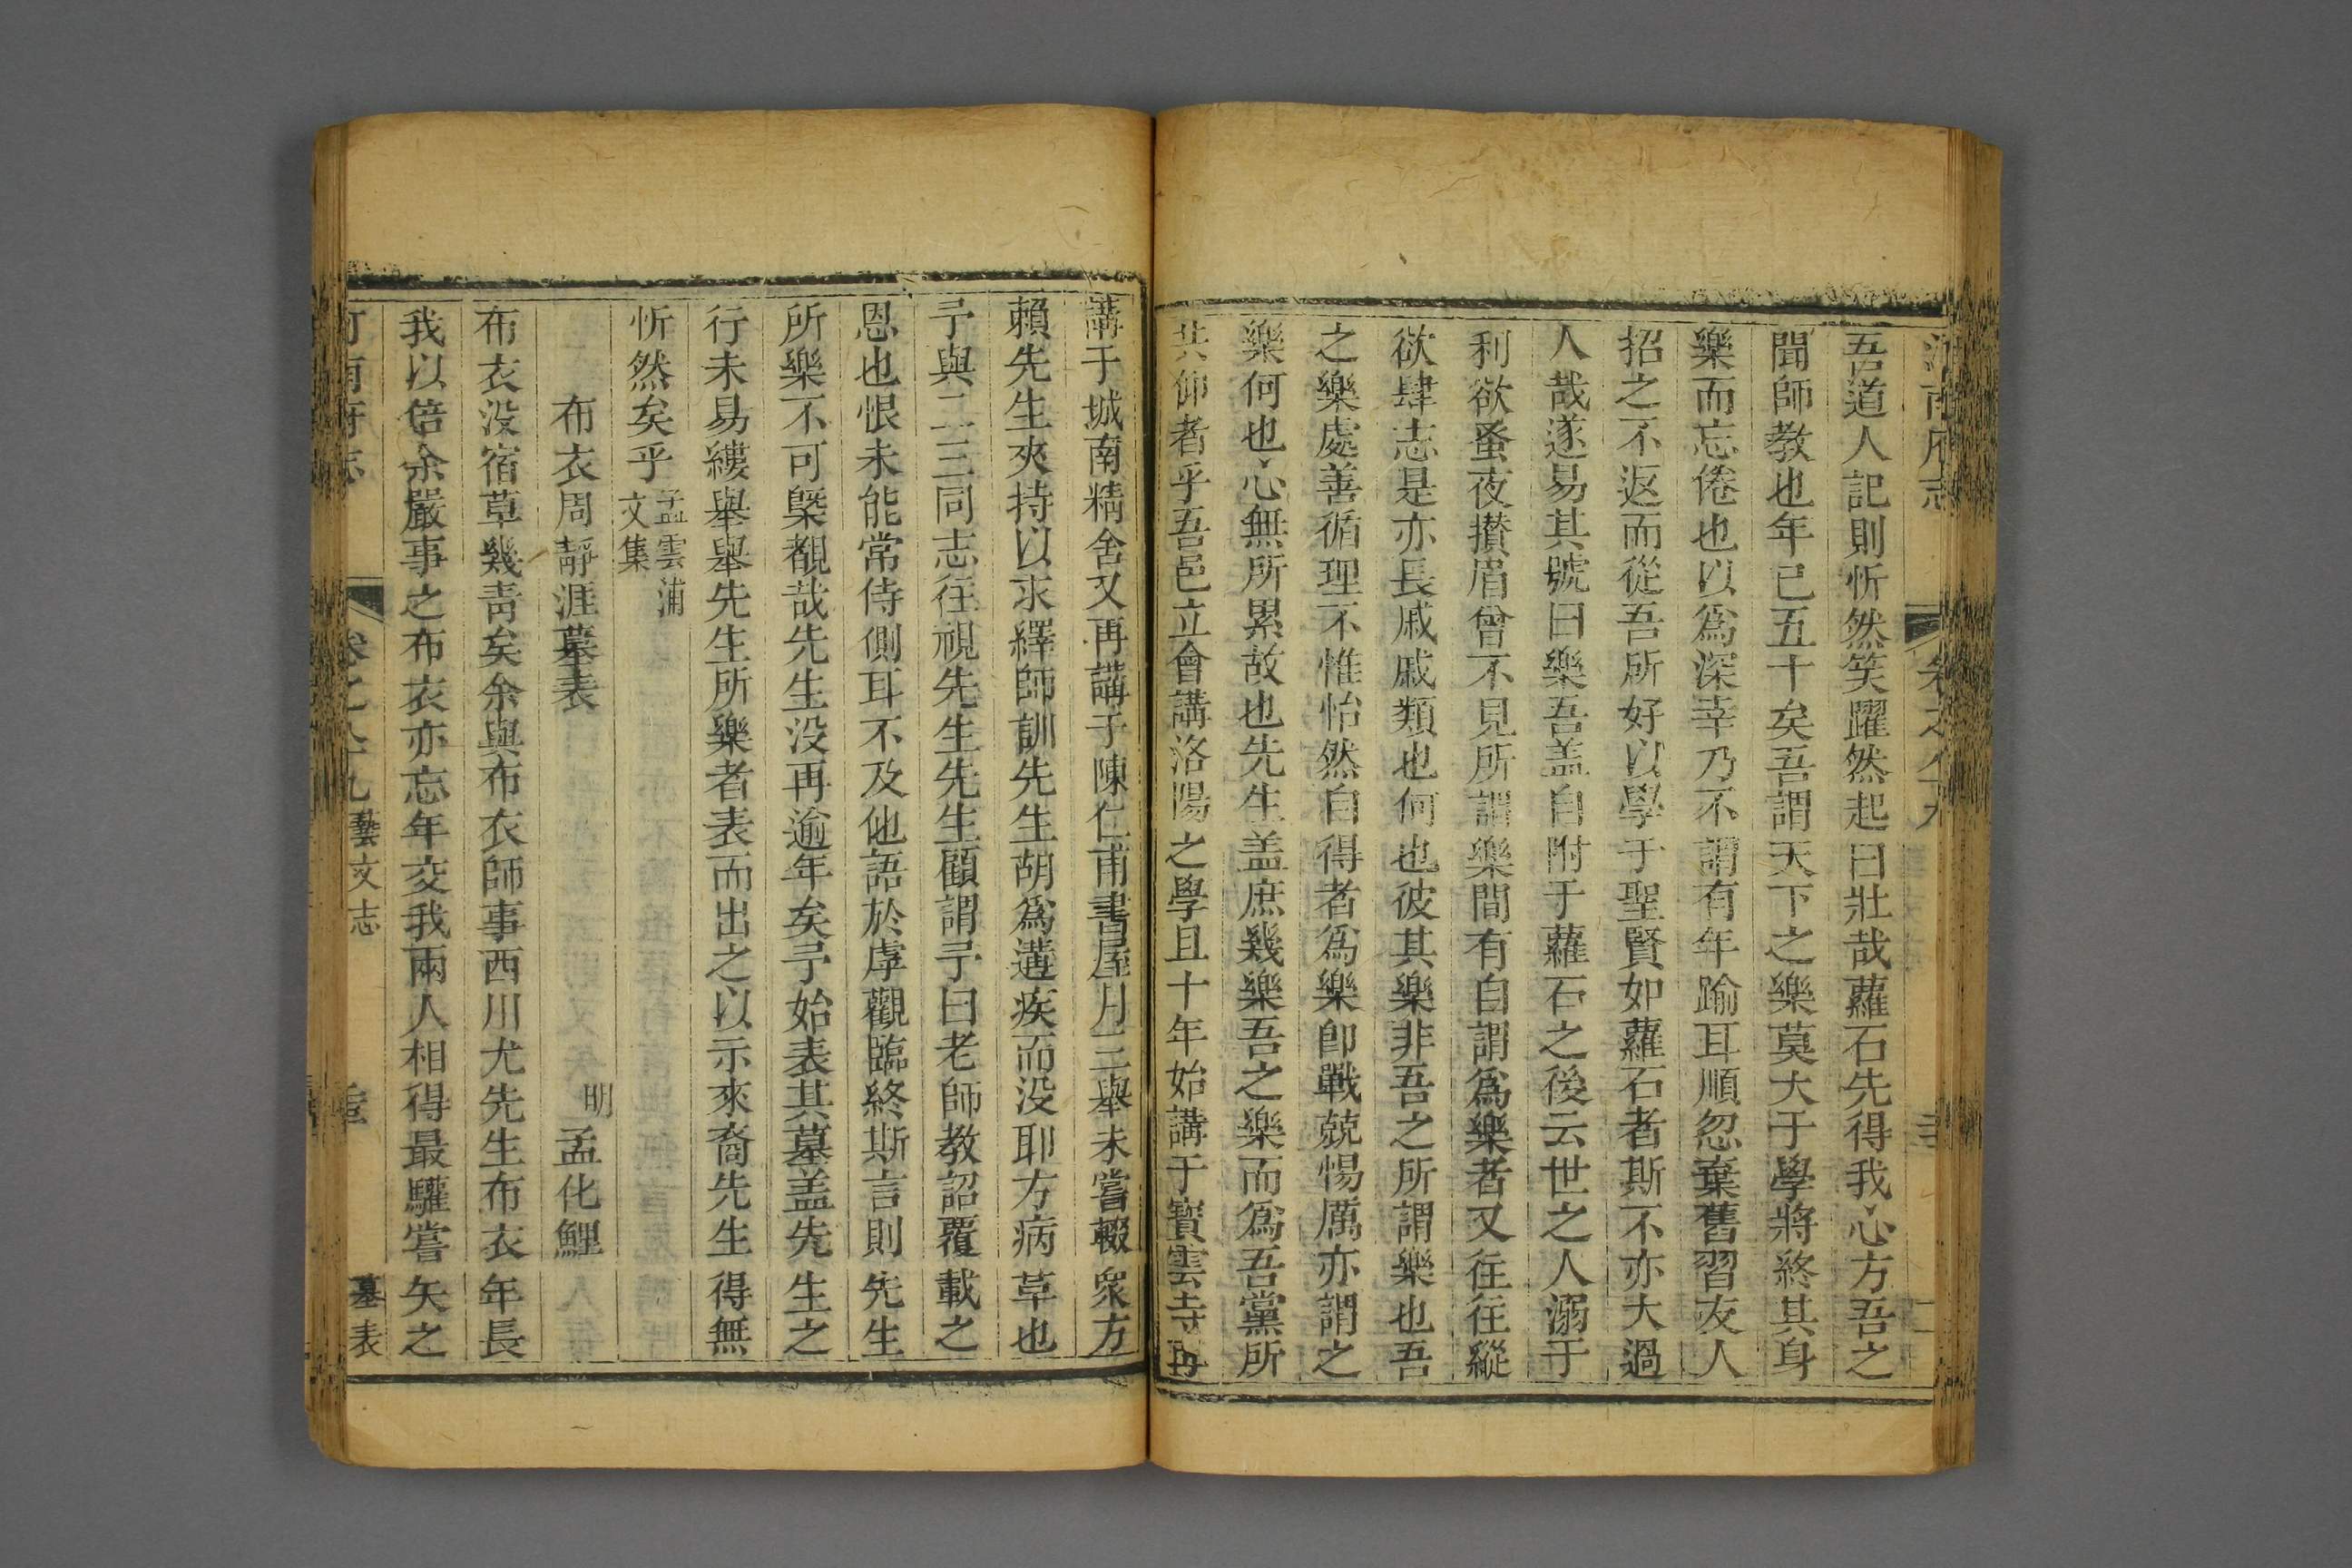 吾道人記則忻然笑躍然起曰壯哉蘿石先得我心方吾之
聞師教也年已五十矣吾謂天下之樂莫大于學將終其身
樂而忘倦也以爲深幸乃不謂有年踰耳順忽棄舊習友人
招之不返而從吾所好以學于聖賢如蘿石者斯不亦大過
人哉遂易其號曰樂吾盖自附于蘿石之後云世之人溺于
利欲蚤夜攢眉曾不見所謂樂間有自謂爲樂者又往往縱
欲肆志是亦長戚戚類也何也彼其樂非吾之所謂樂也吾
之樂處善循理不惟怡然自得者爲樂卽戰兢惕厲亦謂之
樂何也心無所累故也先生盖庶幾樂吾之樂而爲吾黨所
共仰者乎吾邑立會講洛陽之學且十年始講于寳雲寺再
講于城南精舍又再講于陳仁甫書屋月三舉未嘗輟衆方
賴先生夾持以求繹師訓先生胡爲遘疾而没耶方病革也
予與二三同志往視先生先生顧謂予曰老師教詔覆載之
恩也恨未能常侍側耳不及他語於虖觀臨終斯言則先生
所樂不可槩覩哉先生没再逾年矣予始表其墓盖先生之
行未易縷舉舉先生所樂者表而出之以示來裔先生得無
忻然矣乎孟雲浦文集
布衣周靜涯墓表 明孟化鯉
布衣没宿草幾靑矣余與布衣師事西川尤先生布衣年長
我以倍余嚴事之布衣亦忘年交我兩人相得最驩嘗矢之
藝文志 墓表